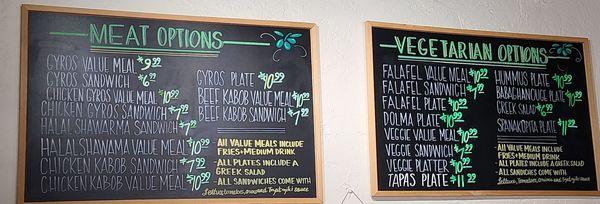 MEAT OPTIONS
GYROS VALUE MEAL $9.99
GYROS SANDWICH $6.99
CHICKEN GYROS VALUE MEAL $10.99
CHICKEN GYROS SANDWICH $7.99
HALAL SHAWARMA SANDWICH $7.99
HALAL SHAWAMA VALUE MEAL $10.99
CHICKEN KABOB SANDWICH $7.99
CHICKEN KABOB VALUE MEAL $10.99
GYROS PLATE $10.99
BEEF KABOB VALUE MEAL $10.99
BEEF KABOB SANDWICH $7.99
All VALUE MEALS INCLUDE
FRIES+MEDIUM DRINK
-ALL PLATES INCLUDE A
GREEK SALAD
-ALL SANDWICHES COME WITH
Lettuce, tomatoes, onions and Tzatziki sauce
VEGETARIAN OPTIONS
FALAFEL VALUE MEAL $10.99
FALAFEL SANDWICH $7.99
FALAFEL PLATE $10.99
DOLMA PLATE $10.99
VEGGIE VALUE MEAL $10.99
VEGGIE SANDWICH $7.99
VEGGIE PLATTER $10.99
TAPAS PLATE $11.99
HUMMUS PLATE $10.99
BABAGHANOUGE PLATE $10.99
GREEK SALAD $6.99
SPANAKOPITA PLATE $11.99
ALL VALUE MEALS INCLUDE
FRIES+MEDIUM DRINK
-ALL PLATES INCLUDE A GREEK SALAD
-ALL SANDWICHES COME WITH
Lettuce, tomatoes, onions and Tzatziki sauce